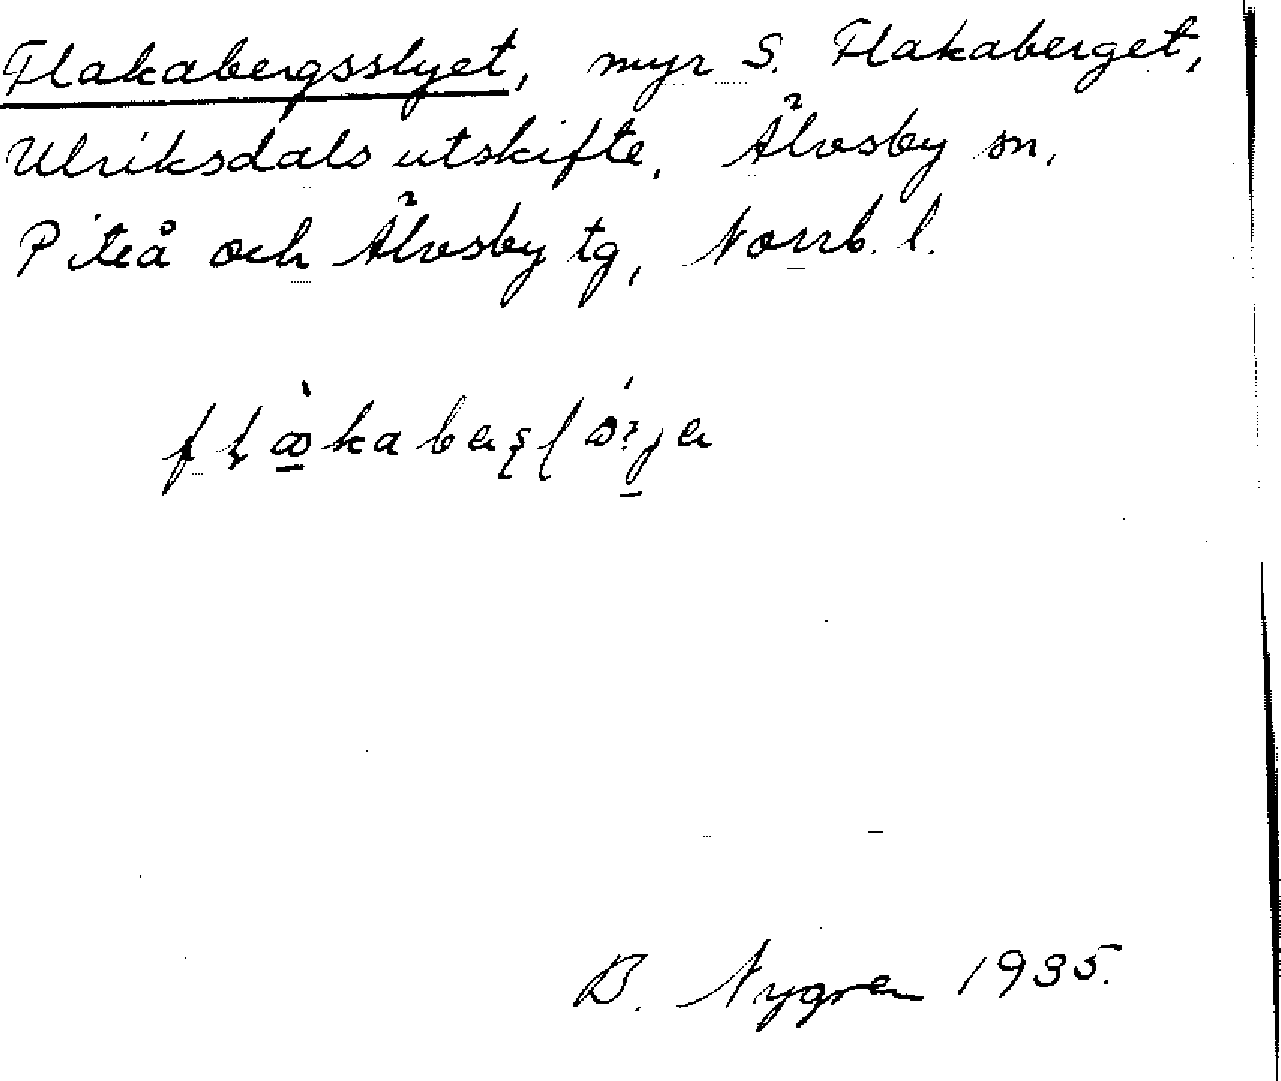 Flakabergsslyet, myr S. Flakaberget,
Ulriksdals utskifte, Älvsby sn,
Piteå och Älvsby tg, Norrb. l.
B. Nygren 1935.